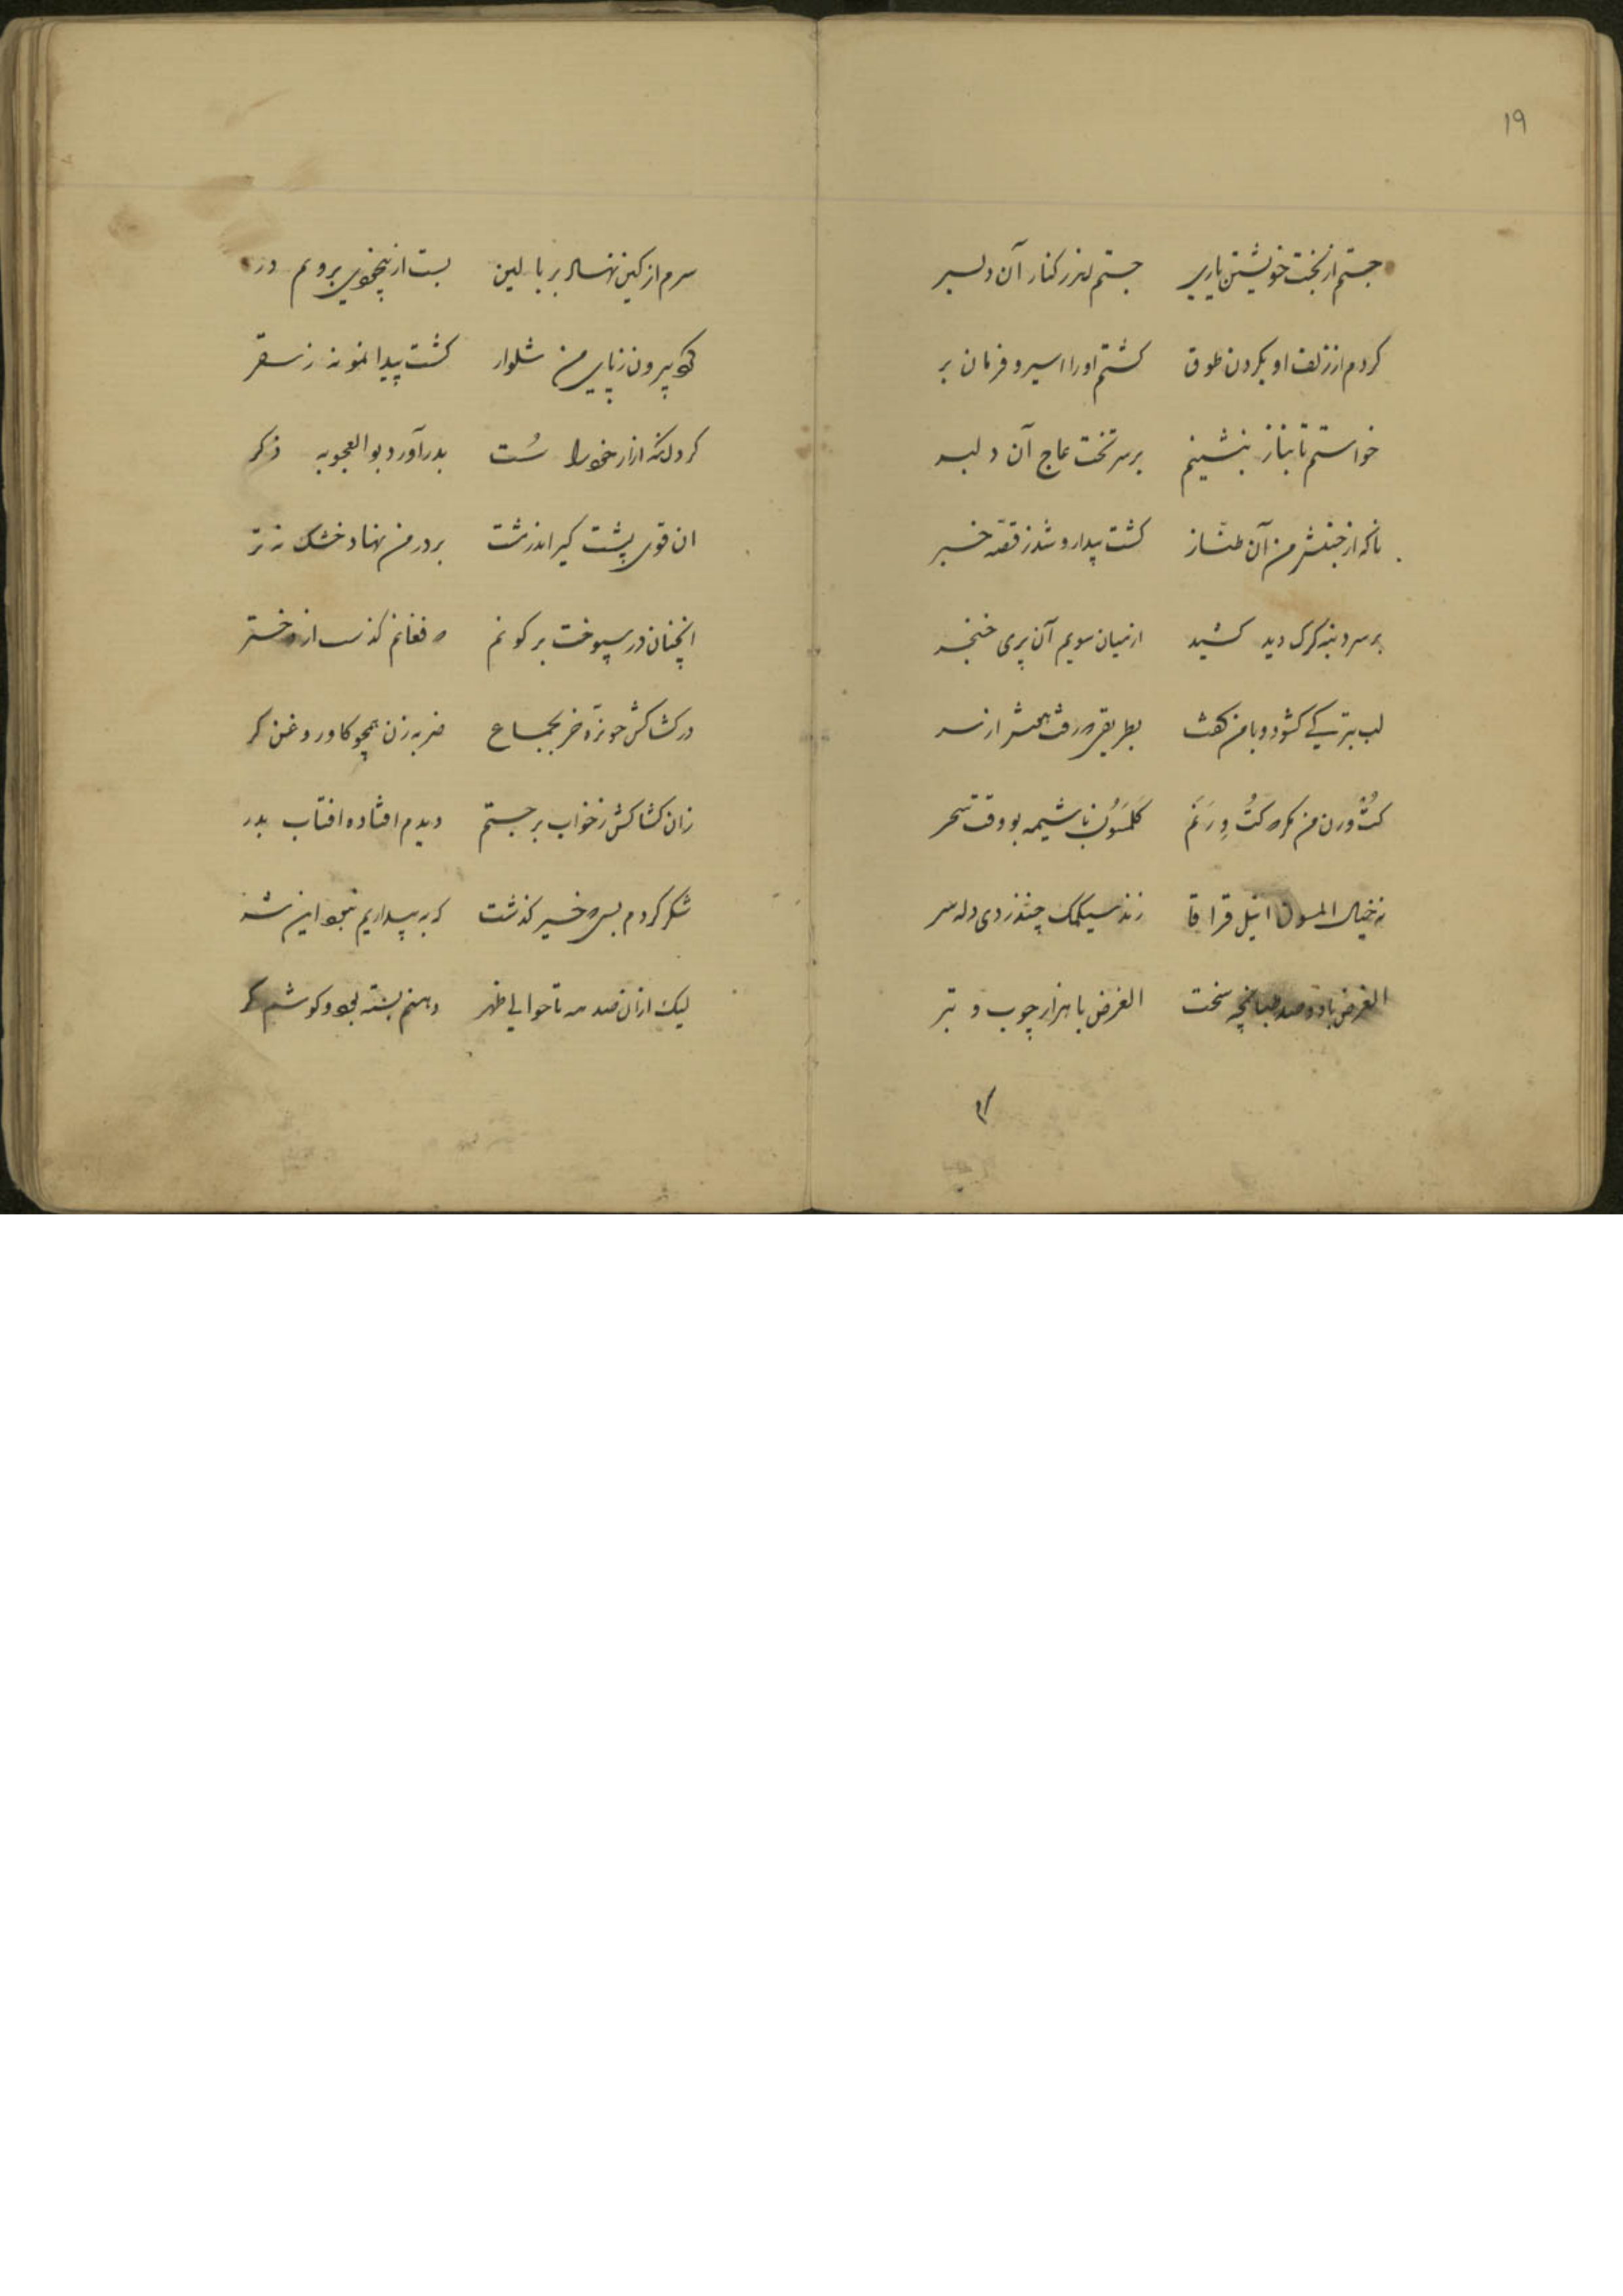 ۱۹
جستم از بخت خویشتن یاری جستم اندر کنار آن دلبر
کردم از زلف او بکردن طوق کشتم او را اسیر و فرمان بر
خواستم تا بناز بنشینم بر سر تخت عاج آن دلبر
ناکه از جنبش من آن طناز کشت بیدار و شد ز قصه خبر
بر سر دنبه کرک دید کشید از میان سویم آن پری خنجر
لب بترکی کشود و با من کفت بطریقی که رفت هوشم از سر
کلمسون باشیمه بو وقت سحر
نه خیال المسون قرا قا
الغرض با دو صد طپانچه سخت الغرض با هزار چوب و تبر
سرم از کین نهاد بر بالین بست از بیخودی برویم در
کرد بیرون ز پای من شلوار کشت پیدا نمونه ز سقر
کرد انکه ازار خود را سُست بدر آورد بو العجوبه ذکر
ان قوی پشت کیر اندر شت بر در من نهاد خشک نه تر
انچنان در سپوخت بر کونم که فغانم کذشت از اختر
در کشاکش چو نره خر بجماع ضربه زن همچو کاو روغن کر
زان کشاکش ز خواب بر جستم دیدم افتاده افتاب بدر
شکر کردم بسی که خیر کذشت که به بیداریم نبود این شر
لیک ازان صدمه تا حوالی ظهر دهنم بسته بود و کوشم کر